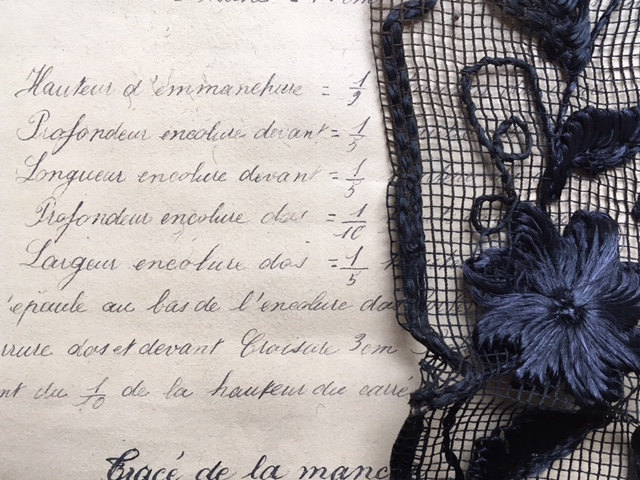 Hauteur d'emmanchure = 1/2
Profondeur encolure devant = 1/5
Longueur encolure devant = 1/5
Profondeur encolure dos = 1/10
Largeur encolure dos = 1/5
l'épaule au bas de l'encolure dos
dos et devant Croisure 3cm
du 1/10 de la hauteur du carré
Tracé de la manc